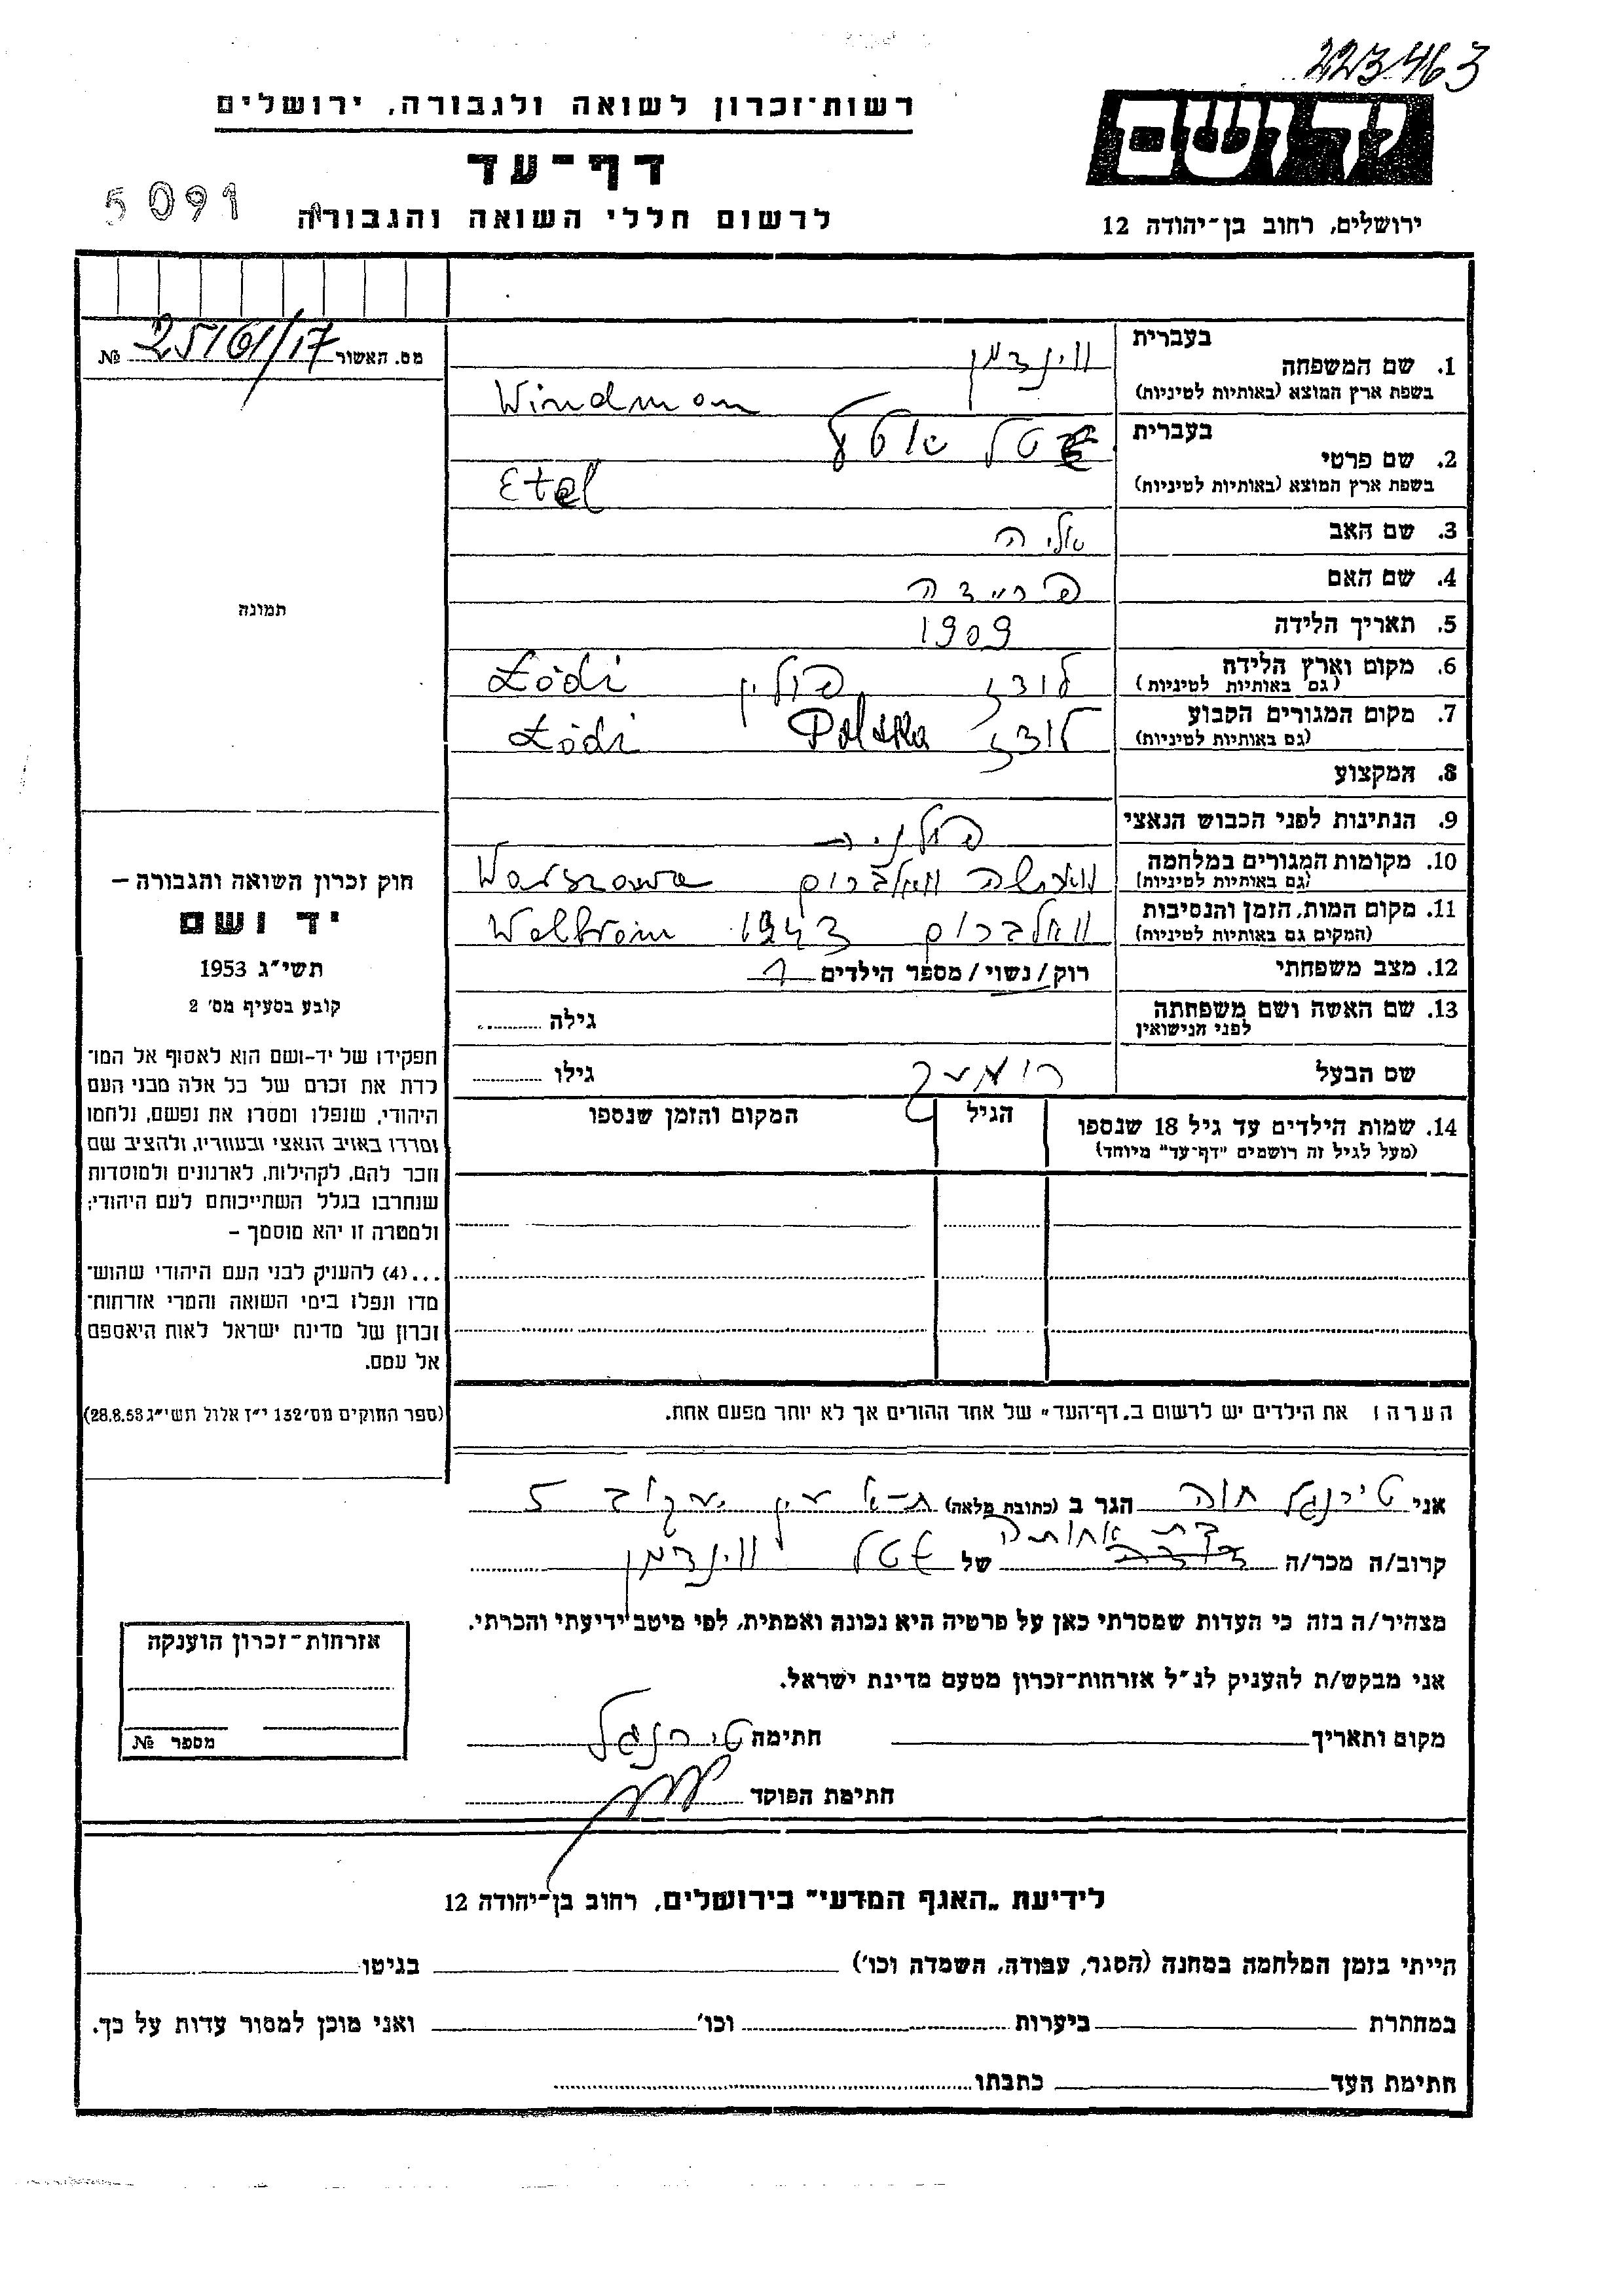 223463
רשות-זכרון לשואה ולגבורה, ירושלים
יד ושם
דף-עד
5091
לרשום חללי השואה והגבורה
ירושלים, רחוב בן-יהודה 12
מס. האשור 25/61/17 №
1. שם המשפחה בעברית ווינדמן
בשפת ארץ המוצא (באותיות לטיניות) Windman
2. שם פרטי בעברית אטל
בשפת ארץ המוצא (באותיות לטיניות) Etel
3. שם האב אליה
4. שם האם פריידה
5. תאריך הלידה 1909
6. מקום וארץ הלידה (גם באותיות לטיניות) לודז פולין Łódź
7. מקום המגורים הקבוע (גם באותיות לטיניות) לודז Polska Łódź
8. המקצוע
9. הנתינות לפני הכבוש הנאצי פולניה
10. מקומות המגורים במלחמה (גם באותיות לטיניות) ווארשה וואלברום Warszawa
11. מקום המות, הזמן והנסיבות (המקום גם באותיות לטיניות) וואלברום 1943 Wolbrom
12. מצב משפחתי רוק/נשוי/מספר הילדים 1
13. שם האשה ושם משפחתה לפני הנישואין גילה
שם הבעל גילו
14. שמות הילדים עד גיל 18 שנספו הגיל המקום והזמן שנספו
(מעל לגיל זה רושמים "דף-עד" מיוחד)
הערה: את הילדים יש לרשום ב„דף-העד" של אחד ההורים אך לא יותר מפעם אחת.
תמונה
חוק זכרון השואה והגבורה –
יד ושם
תשי"ג 1953
קובע בסעיף מס' 2
תפקידו של יד-ושם הוא לאסוף אל המו־
לדת את זכרם של כל אלה מבני העם
היהודי, שנפלו ומסרו את נפשם, נלחמו
ומרדו באויב הנאצי ובעוזריו, ולהציב שם
וזכר להם, לקהילות, לארגונים ולמוסדות
שנחרבו בגלל השתייכותם לעם היהודי;
ולמטרה זו יהא מוסמך –
...(4) להעניק לבני העם היהודי שהוש־
מדו ונפלו בימי השואה והמרי אזרחות־
זכרון של מדינת ישראל לאות היאספם
אל עמם.
(ספר החוקים מס' 132 י"ז אלול תשי"ג 28.8.53)
אני טירנגל חוה הגר ב (כתובת מלאה) ת-א עין יעקב 5
קרוב/ה מכר/ה בת אחותה של אטל ווינדמן
מצהיר/ה בזה כי העדות שמסרתי כאן על פרטיה היא נכונה ואמתית, לפי מיטב ידיעתי והכרתי.
אני מבקש/ת להעניק לנ"ל אזרחות-זכרון מטעם מדינת ישראל.
מקום ותאריך חתימה טירנגל
חתימת הפוקד
אזרחות-זכרון הוענקה
מספר №
לידיעת „האגף המדעי" בירושלים, רחוב בן-יהודה 12
הייתי בזמן המלחמה במחנה (הסגר, עבודה, השמדה וכו') בגיטו
במחתרת ביערות וכו' ואני מוכן למסור עדות על כך.
חתימת העד כתבתו